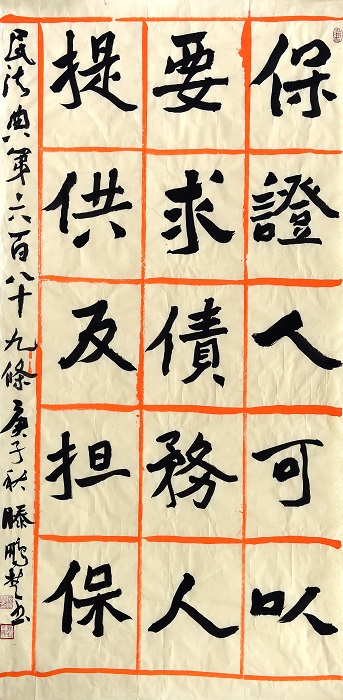 保證人可以
要求債務人
提供反担保
民法典第六百八十九條 庚子秋 滕鵬楚書